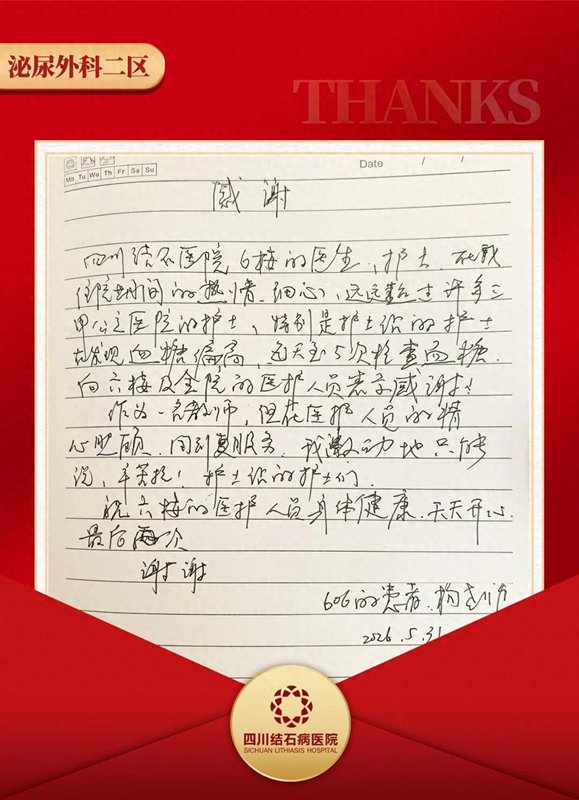 泌尿外科二区
THANKS
Mo Tu We Th Fr Sa Su
Date / /
感谢
四川结石医院6楼的医生、护士、在我
住院期间的热情、细心、远远超过许多三
甲公立医院的护士、特别是护士站的护士
在发现血糖偏高、每天至少5次检查血糖.
向六楼及全院的医护人员表示感谢!
作为一名教师,但在医护人员的精
心照顾、周到服务、我激动地只能
说,辛苦了! 护士站的护士们.
祝六楼的医护人员身体健康.天天开心.
最后再次
谢谢
606的患者.杨
2026.5.31
四川结石病医院
SICHUAN LITHIASIS HOSPITAL